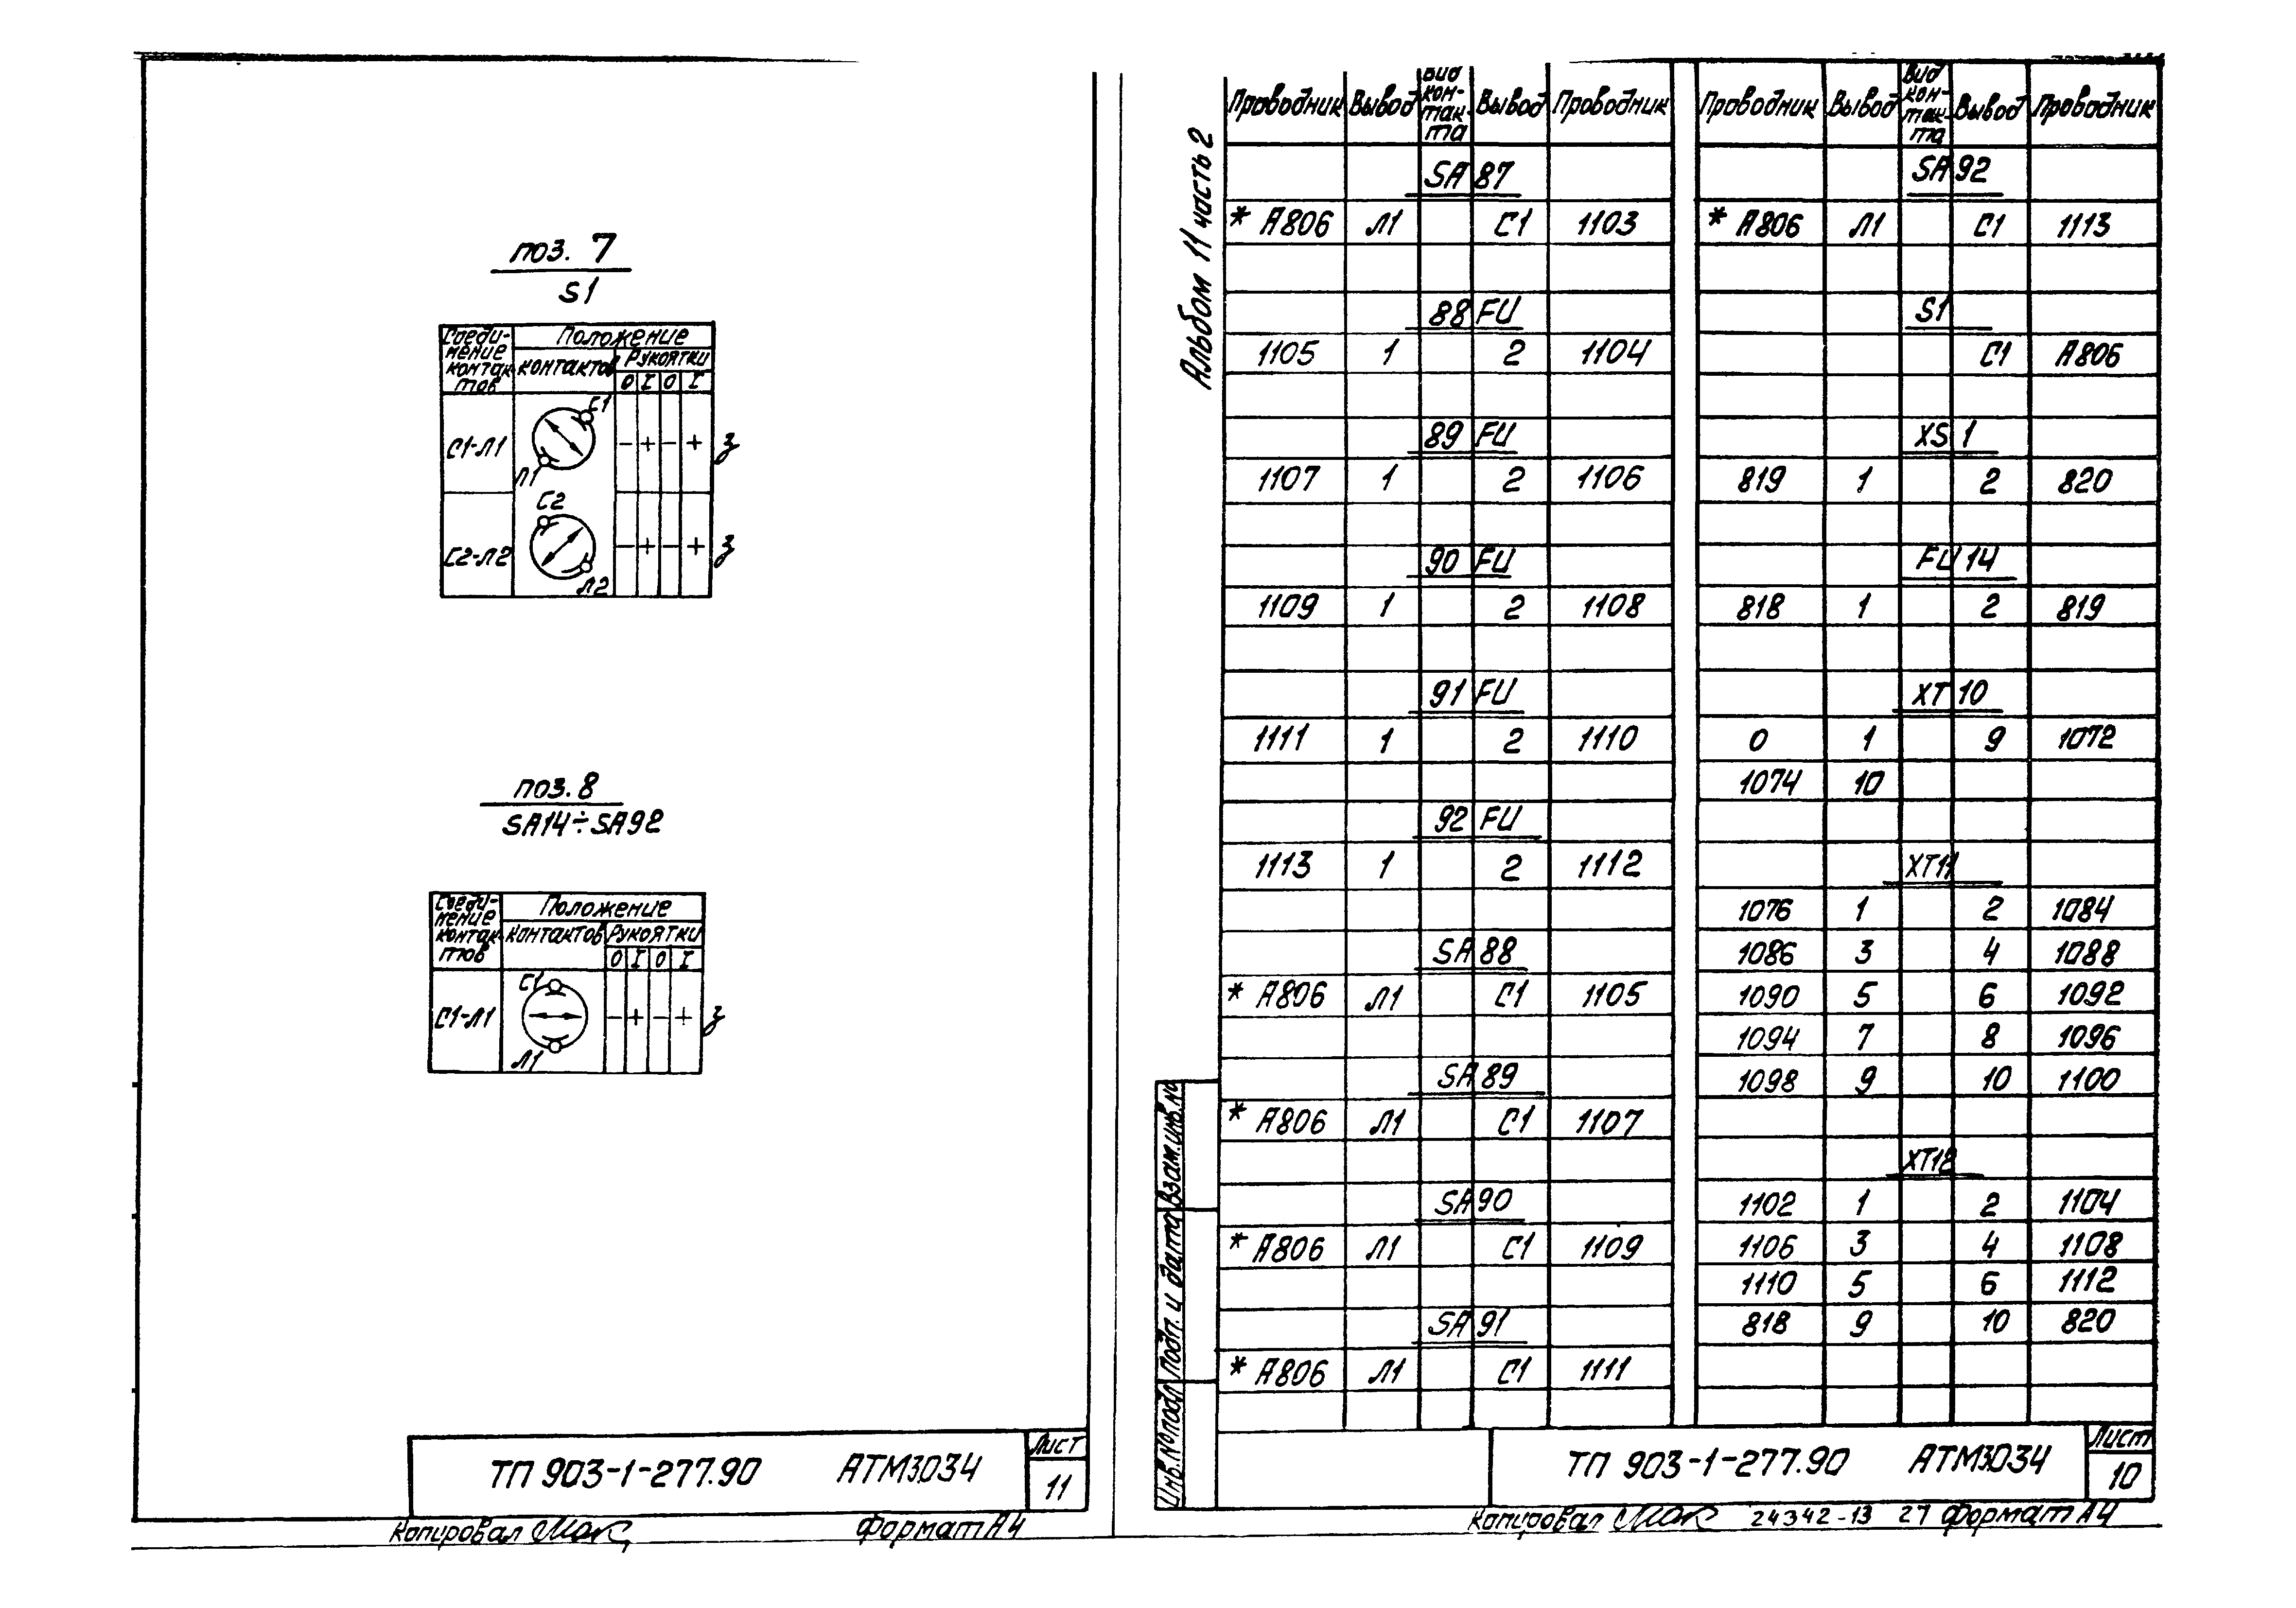 поз. 7
S1
Соеди-
нение
контак-
тов
Положение
контактов
Рукоятки
0 I 0 I
С1-Л1
С1
Л1
- + - +
з
С2-Л2
С2
Л2
- + - +
з
поз. 8
SA14÷SA92
Соеди-
нение
контак-
тов
Положение
контактов
Рукоятки
0 I 0 I
С1-Л1
С1
Л1
- + - +
з
ТП 903-1-277.90 АТМ3.034
Лист
11
Копировал Мак
Формат А4
Альбом 11 часть 2
Проводник Вывод Вид кон-так-та Вывод Проводник
SA 87
* А806 Л1 С1 1103
88 FU
1105 1 2 1104
89 FU
1107 1 2 1106
90 FU
1109 1 2 1108
91 FU
1111 1 2 1110
92 FU
1113 1 2 1112
SA 88
* А806 Л1 С1 1105
SA 89
* А806 Л1 С1 1107
SA 90
* А806 Л1 С1 1109
SA 91
* А806 Л1 С1 1111
Проводник Вывод Вид кон-так-та Вывод Проводник
SA 92
* А806 Л1 С1 1113
S1
С1 А806
XS 1
819 1 2 820
FU 14
818 1 2 819
XT 10
0 1 9 1072
1074 10
XT11
1076 1 2 1084
1086 3 4 1088
1090 5 6 1092
1094 7 8 1096
1098 9 10 1100
XT12
1102 1 2 1104
1106 3 4 1108
1110 5 6 1112
818 9 10 820
Инв.№подл
Подп. и дата
Взам.инв.№
ТП 903-1-277.90 АТМ3.034
Лист
10
Копировал Мак 24342-13 27 Формат А4